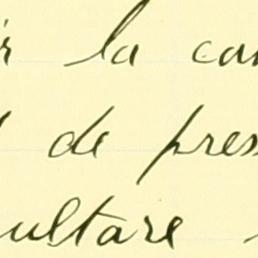 la
de pres
ultare